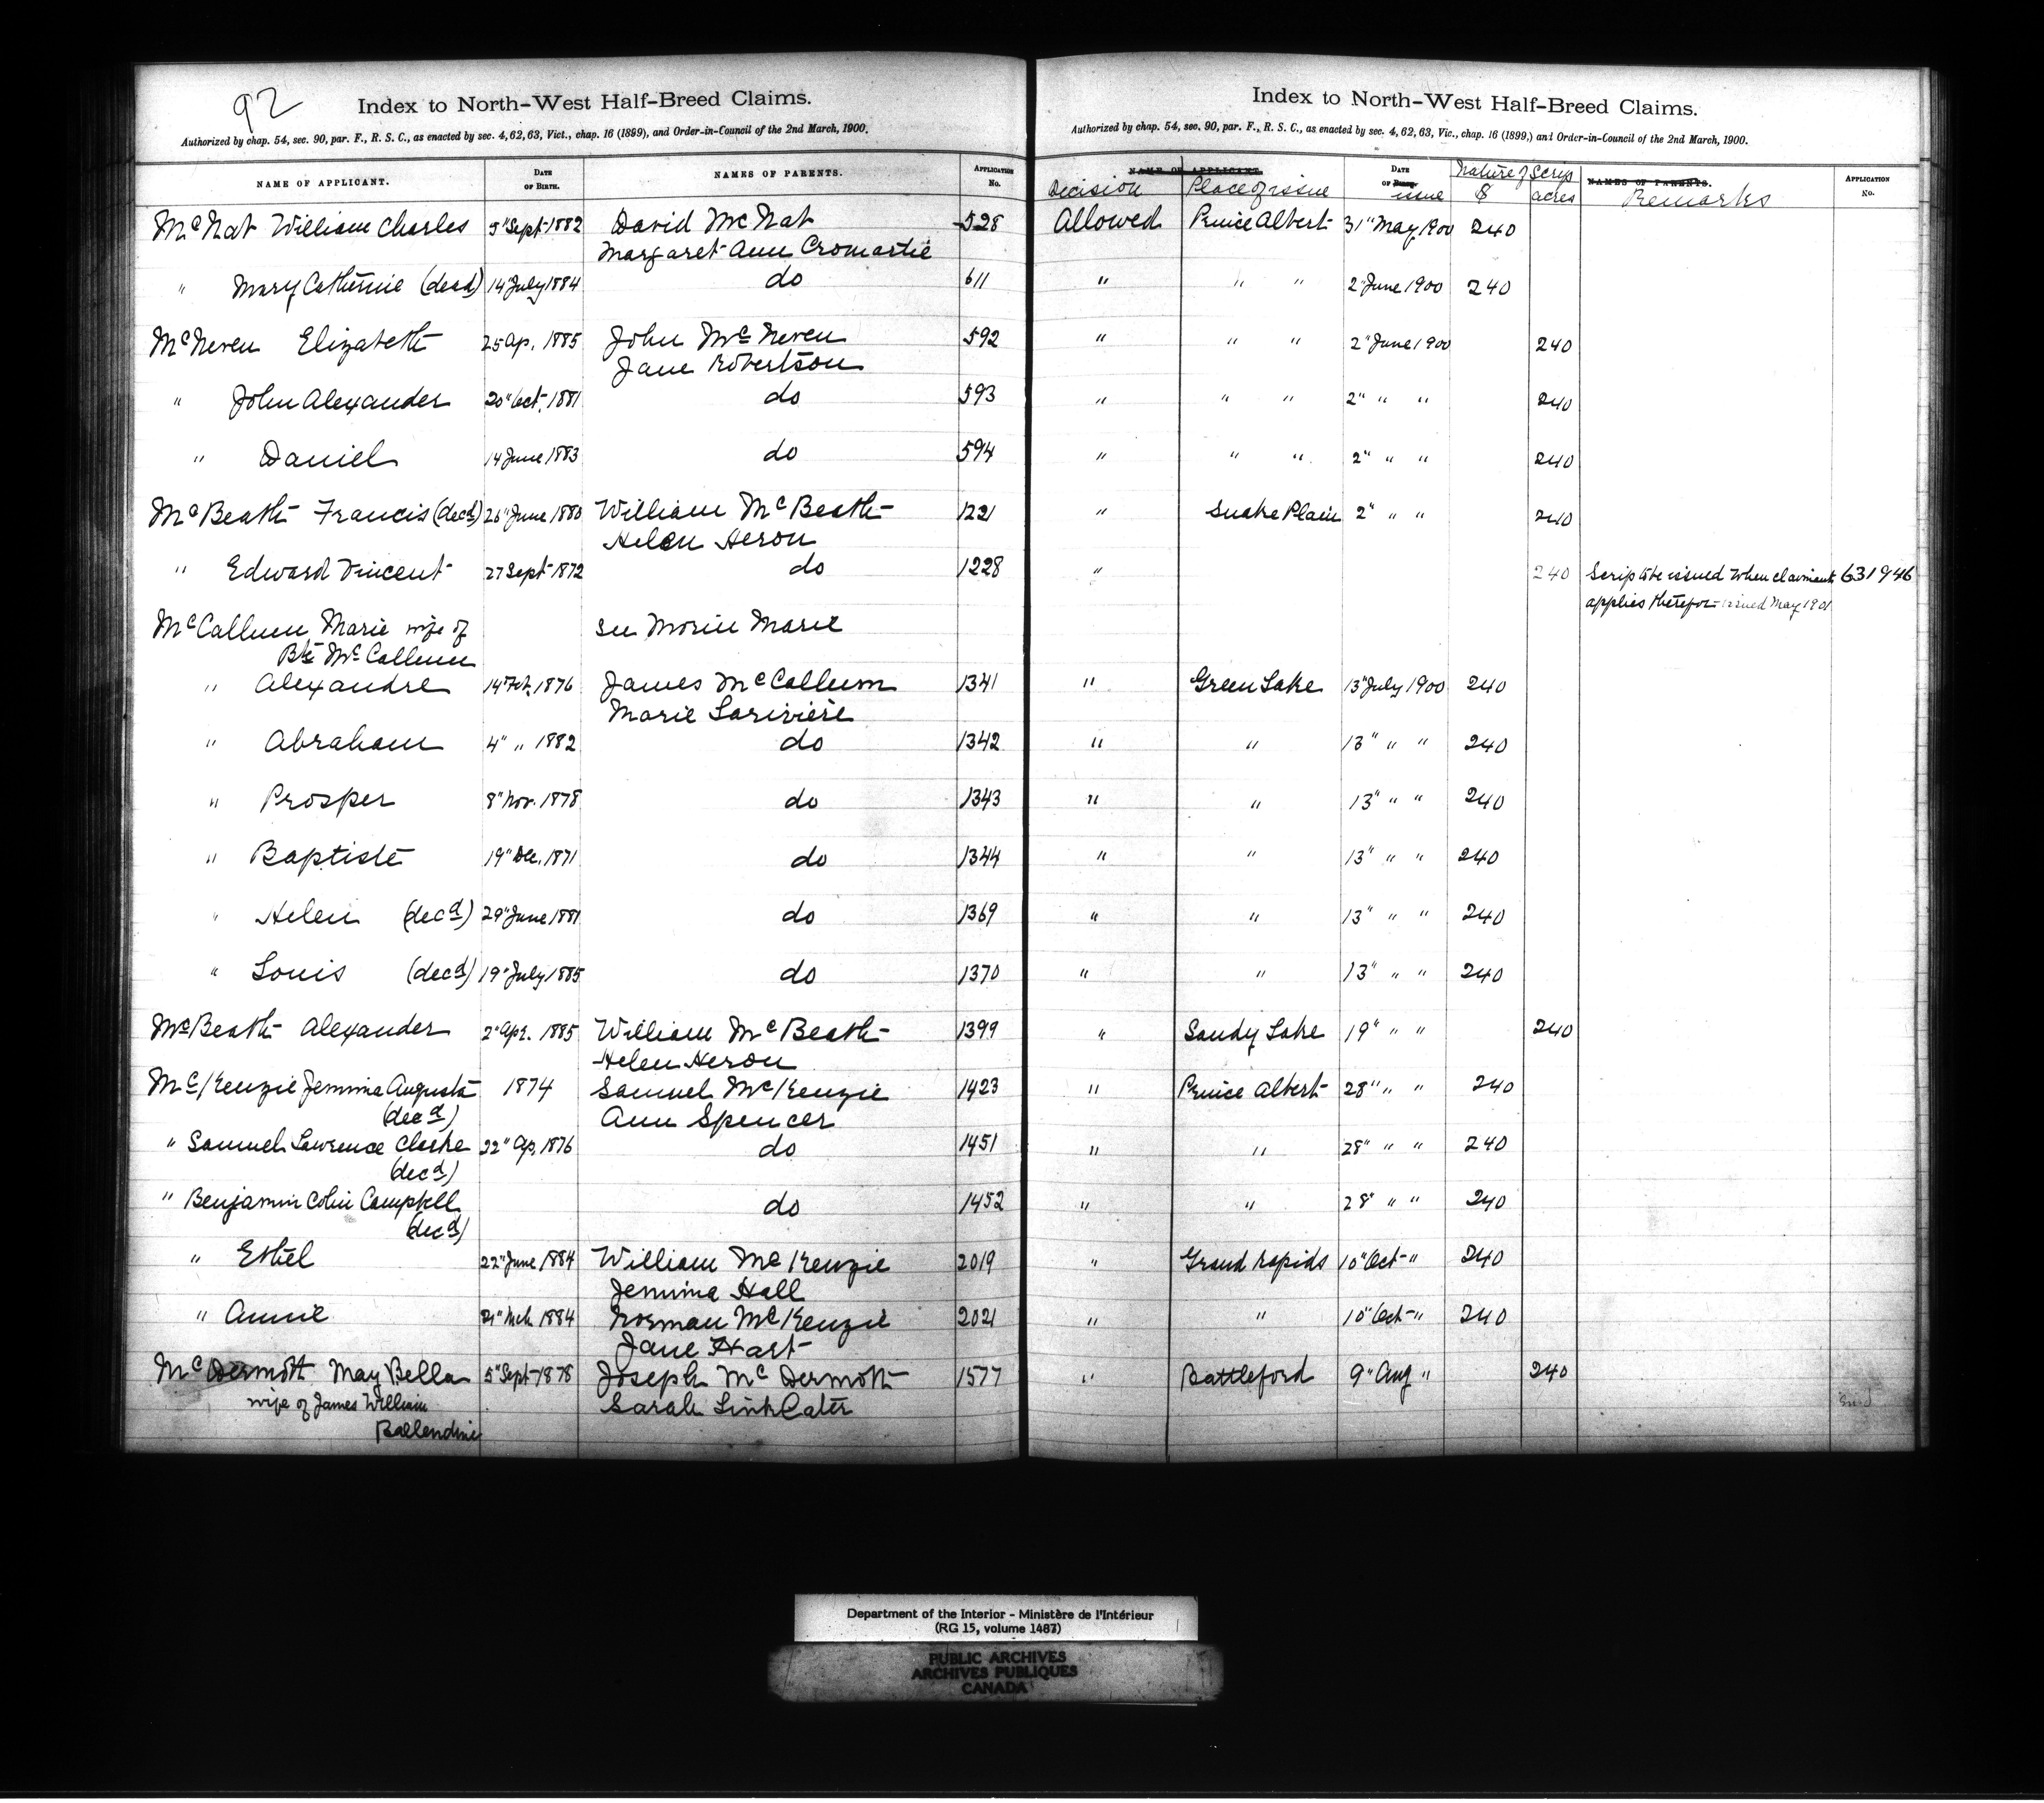 92
Index to North-West Half-Breed Claims.
Authorized by chap. 54, sec. 90, par. F., R. S. C., as enacted by sec. 4, 62, 63, Vict., chap. 16 (1899), and Order-in-Council of the 2nd March, 1900.
NAME OF APPLICANT. DATE OF BIRTH. NAMES OF PARENTS. APPLICATION No.
Index to North-West Half-Breed Claims.
Authorized by chap. 54, sec. 90, par. F., R. S. C., as enacted by sec. 4, 62, 63, Vic., chap. 16 (1899,) and Order-in-Council of the 2nd March, 1900.
NAME OF APPLICANT. DATE Nature of Scrip NAMES OF PARENTS. APPLICATION
Decision Place of issue OF issue $ acres Remarks No.
McNat William Charles 5" Sept 1882 David McNat 528 Allowed Prince Albert 31" May 1900 240
Margaret Ann Cromartie
" Mary Catherine (dead) 14 July 1884 do 611 " " " 2" June 1900 240
McNeven Elizabeth 25 Ap. 1885 John McNeven 592 " " " 2" June 1900 240
Jane Robertson
" John Alexander 20" Oct. 1881 do 593 " " " 2" " " 240
" Daniel 14 June 1883 do 594 " " " 2" " " 240
McBeath Francis (decd) 26" June 1880 William McBeath 1221 " Snake Plain 2" " " 240
Helen Heron
" Edward Vincent 27 Sept 1872 do 1228 " 240 Scrip to be issued when claimant 631946
applies therefor - issued May 1901
McCallum Marie wife of see Morin Marie
Bte McCallum
" Alexandre 14" Fet. 1876 James McCallum 1341 " Green Lake 13" July 1900 240
Marie Lariviere
" Abraham 4" " 1882 do 1342 " " 13" " " 240
" Prosper 8" Nov. 1878 do 1343 " " 13" " " 240
" Baptiste 19" Dec. 1871 do 1344 " " 13" " " 240
" Helen (decd) 29" June 1881 do 1369 " " 13" " " 240
" Louis (decd) 19" July 1885 do 1370 " " 13" " " 240
McBeath Alexander 2" Apr. 1885 William McBeath 1399 " Sandy Lake 19" " " 240
Helen Heron
McKenzie Jemima Augusta 1874 Samuel McKenzie 1423 " Prince Albert 28" " " 240
(decd) Ann Spencer
" Samuel Lawrence Clarke 22" Ap. 1876 do 1451 " " 28" " " 240
(decd)
" Benjamin Colin Campbell do 1452 " " 28" " " 240
(decd)
" Ethel 22" June 1884 William McKenzie 2019 " Grand Rapids 10" Oct " 240
Jemima Hall
" Annie 21" Mch 1884 Norman McKenzie 2021 " " 10" Oct " 240
Jane Hart
McDermott May Bella 5" Sept 1878 Joseph McDermott 1577 " Battleford 9" Aug " 240
wife of James William Sarah LinkLater
Ballendine
Department of the Interior - Ministère de l'Intérieur
(RG 15, volume 1487)
PUBLIC ARCHIVES
ARCHIVES PUBLIQUES
CANADA